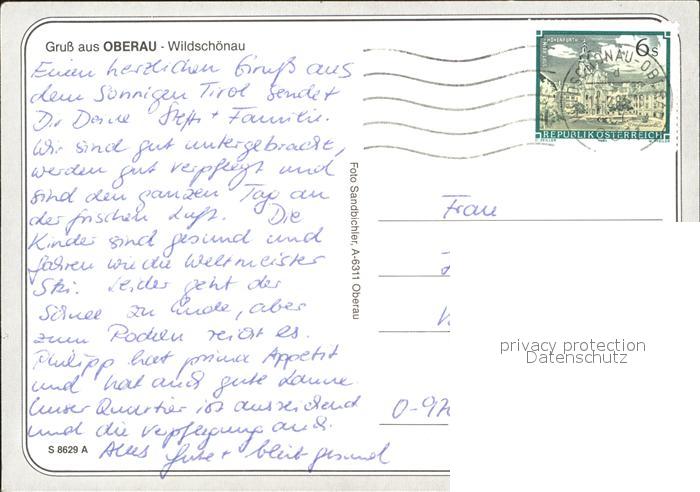 Gruß aus OBERAU - Wildschönau
Einen herzlichen Gruß aus
dem Sonnigen Tirol sendet
Dir Deine Steffi + Familie.
Wir sind gut untergebracht,
werden gut verpflegt und
sind den ganzen Tag an
der frischen Luft. Die
Kinder sind gesund und
fahren wie die Weltmeister
Ski. Leider geht der
Schnee zu Ende, aber
zum Rodeln reicht es.
Philipp hat prima Appetit
und hat auch gute Laune.
Unser Quartier ist ausreichend
und die Verpflegung auch.
Alles Gute + bleibt gesund
S 8629 A
Foto Sandbichler, A-6311 Oberau
6 S
REPUBLIK ÖSTERREICH
Frau
O-97
privacy protection
Datenschutz